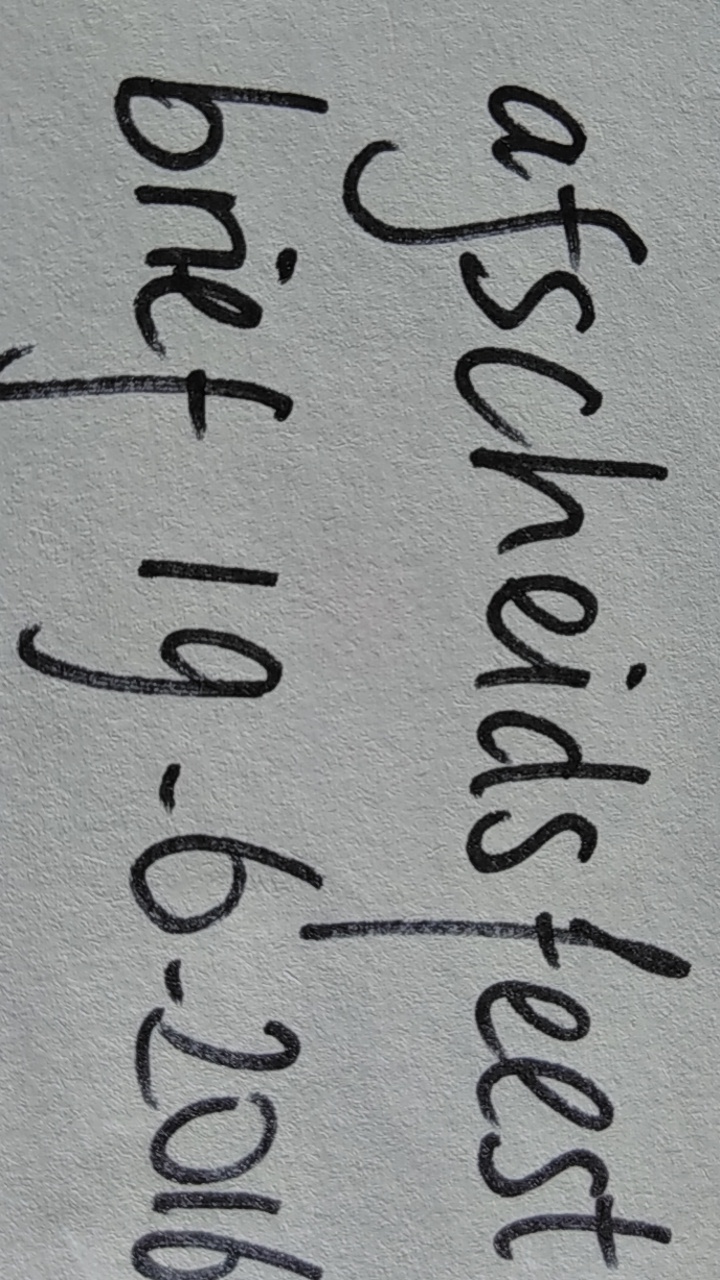 afscheidsfeest
brief 19-6-2016